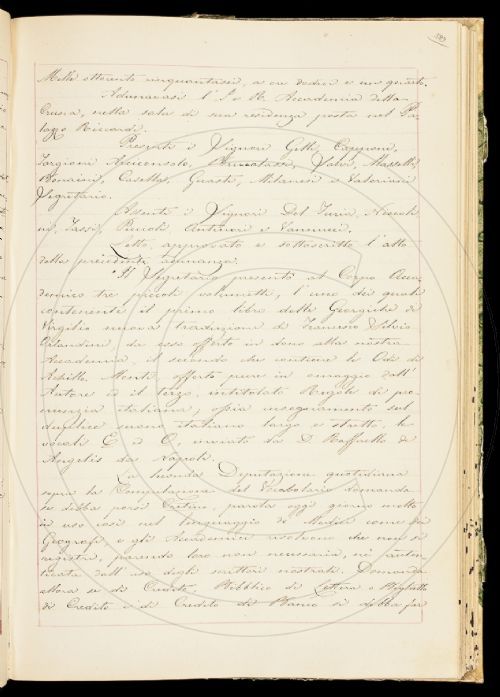 Mille ottocento cinquantasei, a ore dodici e un quarto.
Adunavasi l'I. e R. Accademia della
Crusca, nella sala di sua residenza posta nel Pa-
lazzo Riccardi.
Presenti i Signori Gelli, Casinoni,
Targioni Arciconsolo, Salvi, Masselli,
Bencini, Casella, Guasti, Milanesi e Valeriani
Segretario.
Assenti i Signori Del Furia, Niccoli-
ni, Tassi, Puccioli, Antinori e Vannucci.
Letto, approvato e sottoscritto l'atto
della precedente adunanza.
Il Segretario presentò al Corpo Acca-
demico tre piccoli volumetti, l'uno dei quali
contenente il primo libro delle Georgiche di
Virgilio nuova traduzione di Francesco Silvio
Orlandini, da esso offerto in dono alla nostra
Accademia, il secondo che contiene le Odi di
Achille Monti, offerto pure in omaggio dall'
Autore ed il terzo, intitolato Regole di pro-
nunzia italiana, ossia insegnamento sul
duplice suono italiano largo e stretto, le
vocali E ed O, inviato da D. Raffaello de
Angelis da Napoli.
La seconda Deputazione quotidiana
sopra la Compilazione del Vocabolario domanda
se debba porsi Cretino, parola oggi giorno molto
in uso così nel linguaggio de' Medici come dei
Geografi e gli Accademici risolvono che non si
registri, parendo loro non necessaria, nè auten-
ticata dall'uso degli scrittori nostrali. Domanda
allora se di Credito Pubblico di Lettera o Biglietto
di Credito e di Credito di Banco si debba far